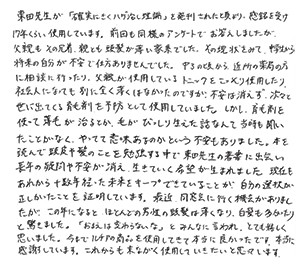 栗田先生が「確実にさくハゲなし理論」を発刊された頃より、感銘を受け
17年くらい使用しています。前回も同様のアンケートでお答えしましたが、
父親も父の兄弟、親とも頭髪が薄い家系でした。その現状をみて、幼少から
将来の自分が不安で仕方ありませんでした。学生の頃から近所の薬局の方
に相談に行ったり、父親が使用しているトニックをこっそり使用したり、
社会人になっても別に全く薄くはなかったのですが、不安は消えず、次々と
世に出てくる育毛剤を予防として使用していました。しかし、育毛剤を
使って薄毛が治るとか、毛がびっしり生えた話なんて当時も聞い
たことがなく、やってて意味あるのかという不安もありました。本を
読んで頭皮や髪のことを勉強する中で栗田先生の著書に出会い
長年の疑問や不安が消え、生きていく希望が生まれました。現在も
あれから十数年経った未来をキープできていることが、自分の選択が
正しかったことを証明しています。最近、同窓会に行く機会がありまし
たが、この年になるとほとんどの男性の頭髪は薄くなり、白髪も多かった
と驚きました。「おまえは変わらないな」とみんなに言われ、とても嬉しく
思いました。今までの商品を使用してきて本当に良かったです。本当に
感謝しています。これからも末ながく使用していきたいと思います。